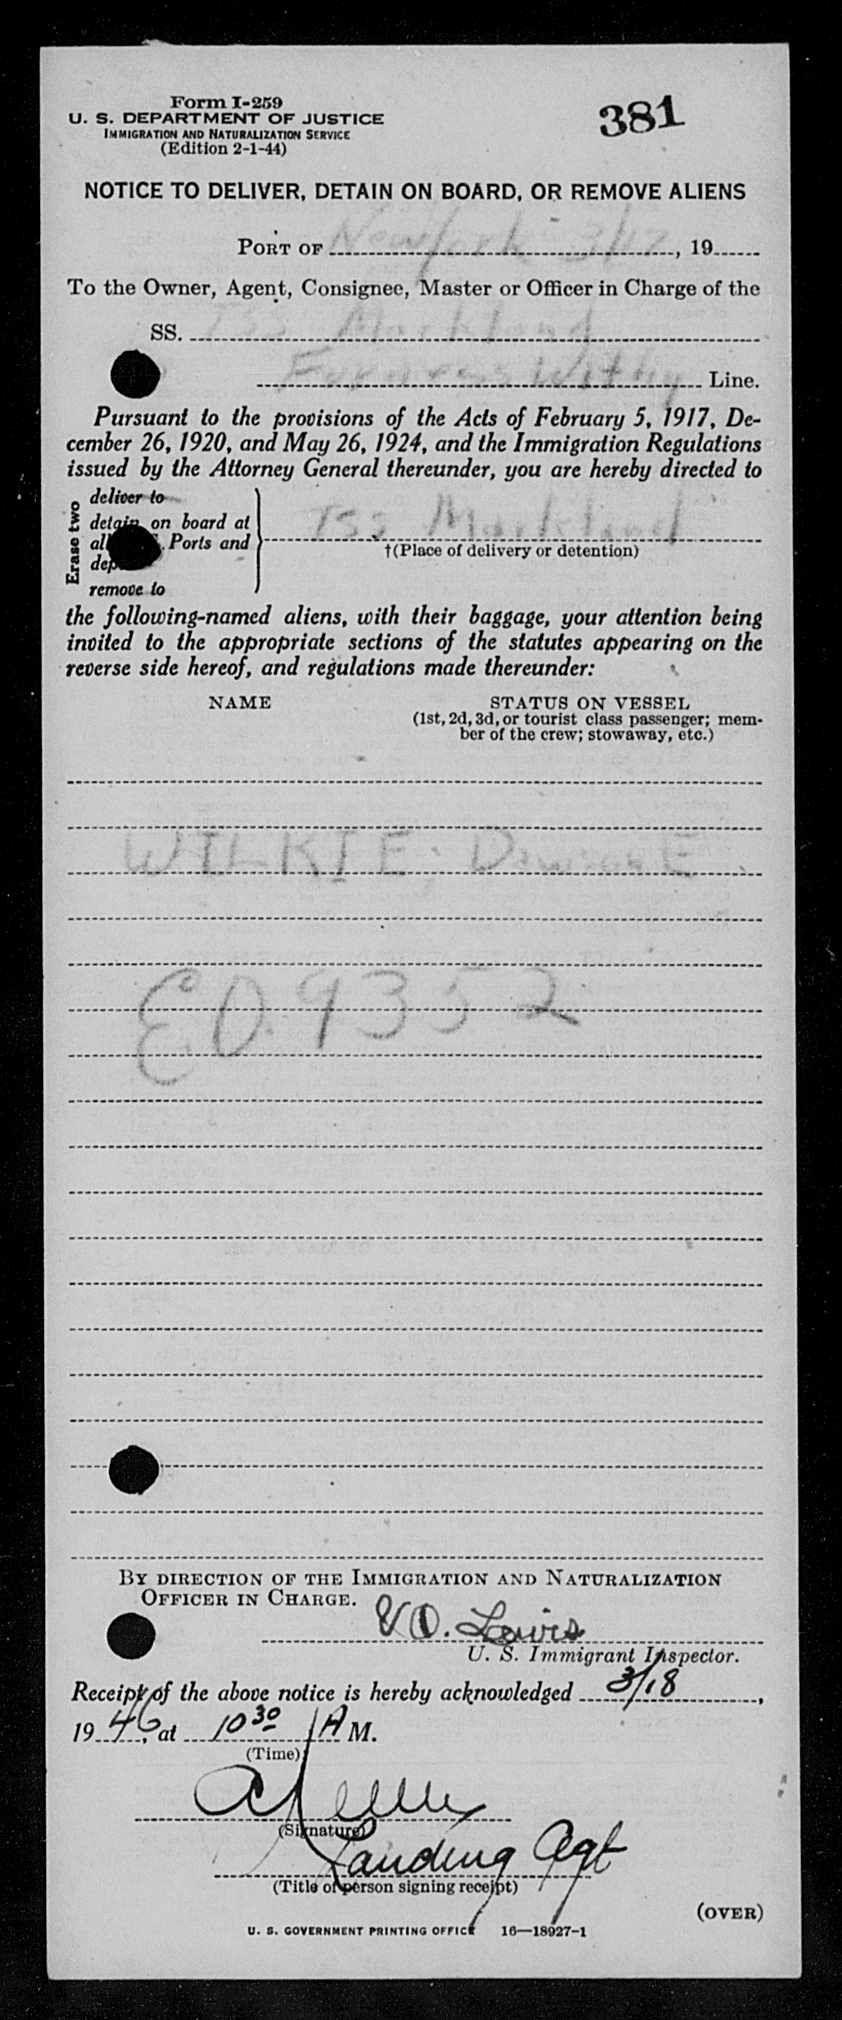 Form I-259
381
U. S. DEPARTMENT OF JUSTICE
IMMIGRATION AND NATURALIZATION SERVICE
(Edition 2-1-44)
NOTICE TO DELIVER, DETAIN ON BOARD, OR REMOVE ALIENS
PORT OF New York 3/17, 19
To the Owner, Agent, Consignee, Master or Officer in Charge of the
SS. Tss Markland
Furness Withy Line.
Pursuant to the provisions of the Acts of February 5, 1917, De-
cember 26, 1920, and May 26, 1924, and the Immigration Regulations
issued by the Attorney General thereunder, you are hereby directed to
Erase two
deliver to
detain on board at
all Ports and
remove to
Tss Markland
†(Place of delivery or detention)
the following-named aliens, with their baggage, your attention being
invited to the appropriate sections of the statutes appearing on the
reverse side hereof, and regulations made thereunder:
NAME STATUS ON VESSEL
(1st, 2d, 3d, or tourist class passenger; mem-
ber of the crew; stowaway, etc.)
WILKIE. E
EO. 9352
BY DIRECTION OF THE IMMIGRATION AND NATURALIZATION
OFFICER IN CHARGE.
O. Lewis
U. S. Immigrant Inspector.
Receipt of the above notice is hereby acknowledged 3/18,
1946, at 10 30 A M.
(Time)
(Signature)
Landing Agt
(Title of person signing receipt)
(OVER)
U. S. GOVERNMENT PRINTING OFFICE 16—18927-1